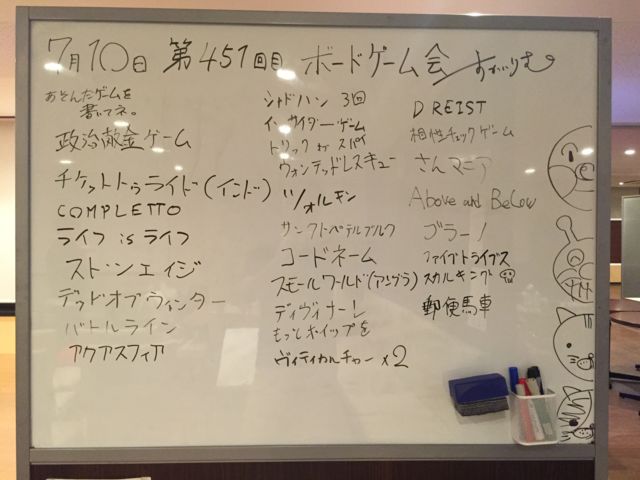 7月10日 第451回目 ボードゲーム会
あそんだゲームを
書いてネ。
政治献金ゲーム
チケットトゥライド(インド)
COMPLETTO
ライフ is ライフ
ストーンエイジ
デッドオブウィンター
バトルライン
アクアスフィア
シャドハン 3回
インサイダー・ゲーム
トリック or スパイ
ウォンテッドレスキュー
ツォルキン
サンクトペテルブルク
コードネーム
スモールワールド(アングラ)
ディヴィナーレ
もっとホイップを
ヴィティカルチャー ×2
DREIST
相性チェックゲーム
さんマニア
Above and Below
ゴラー!
ファイブトライブス
スカルキング
郵便馬車